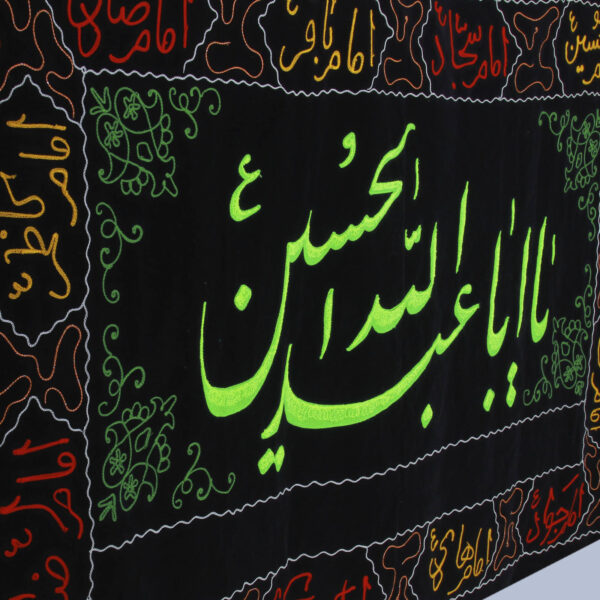 امام حسین
امام سجاد
امام باقر
امام صادق
امام کاظم
یا ابا عبدالله الحسین ع
امام رضا
امام جواد
امام هادی